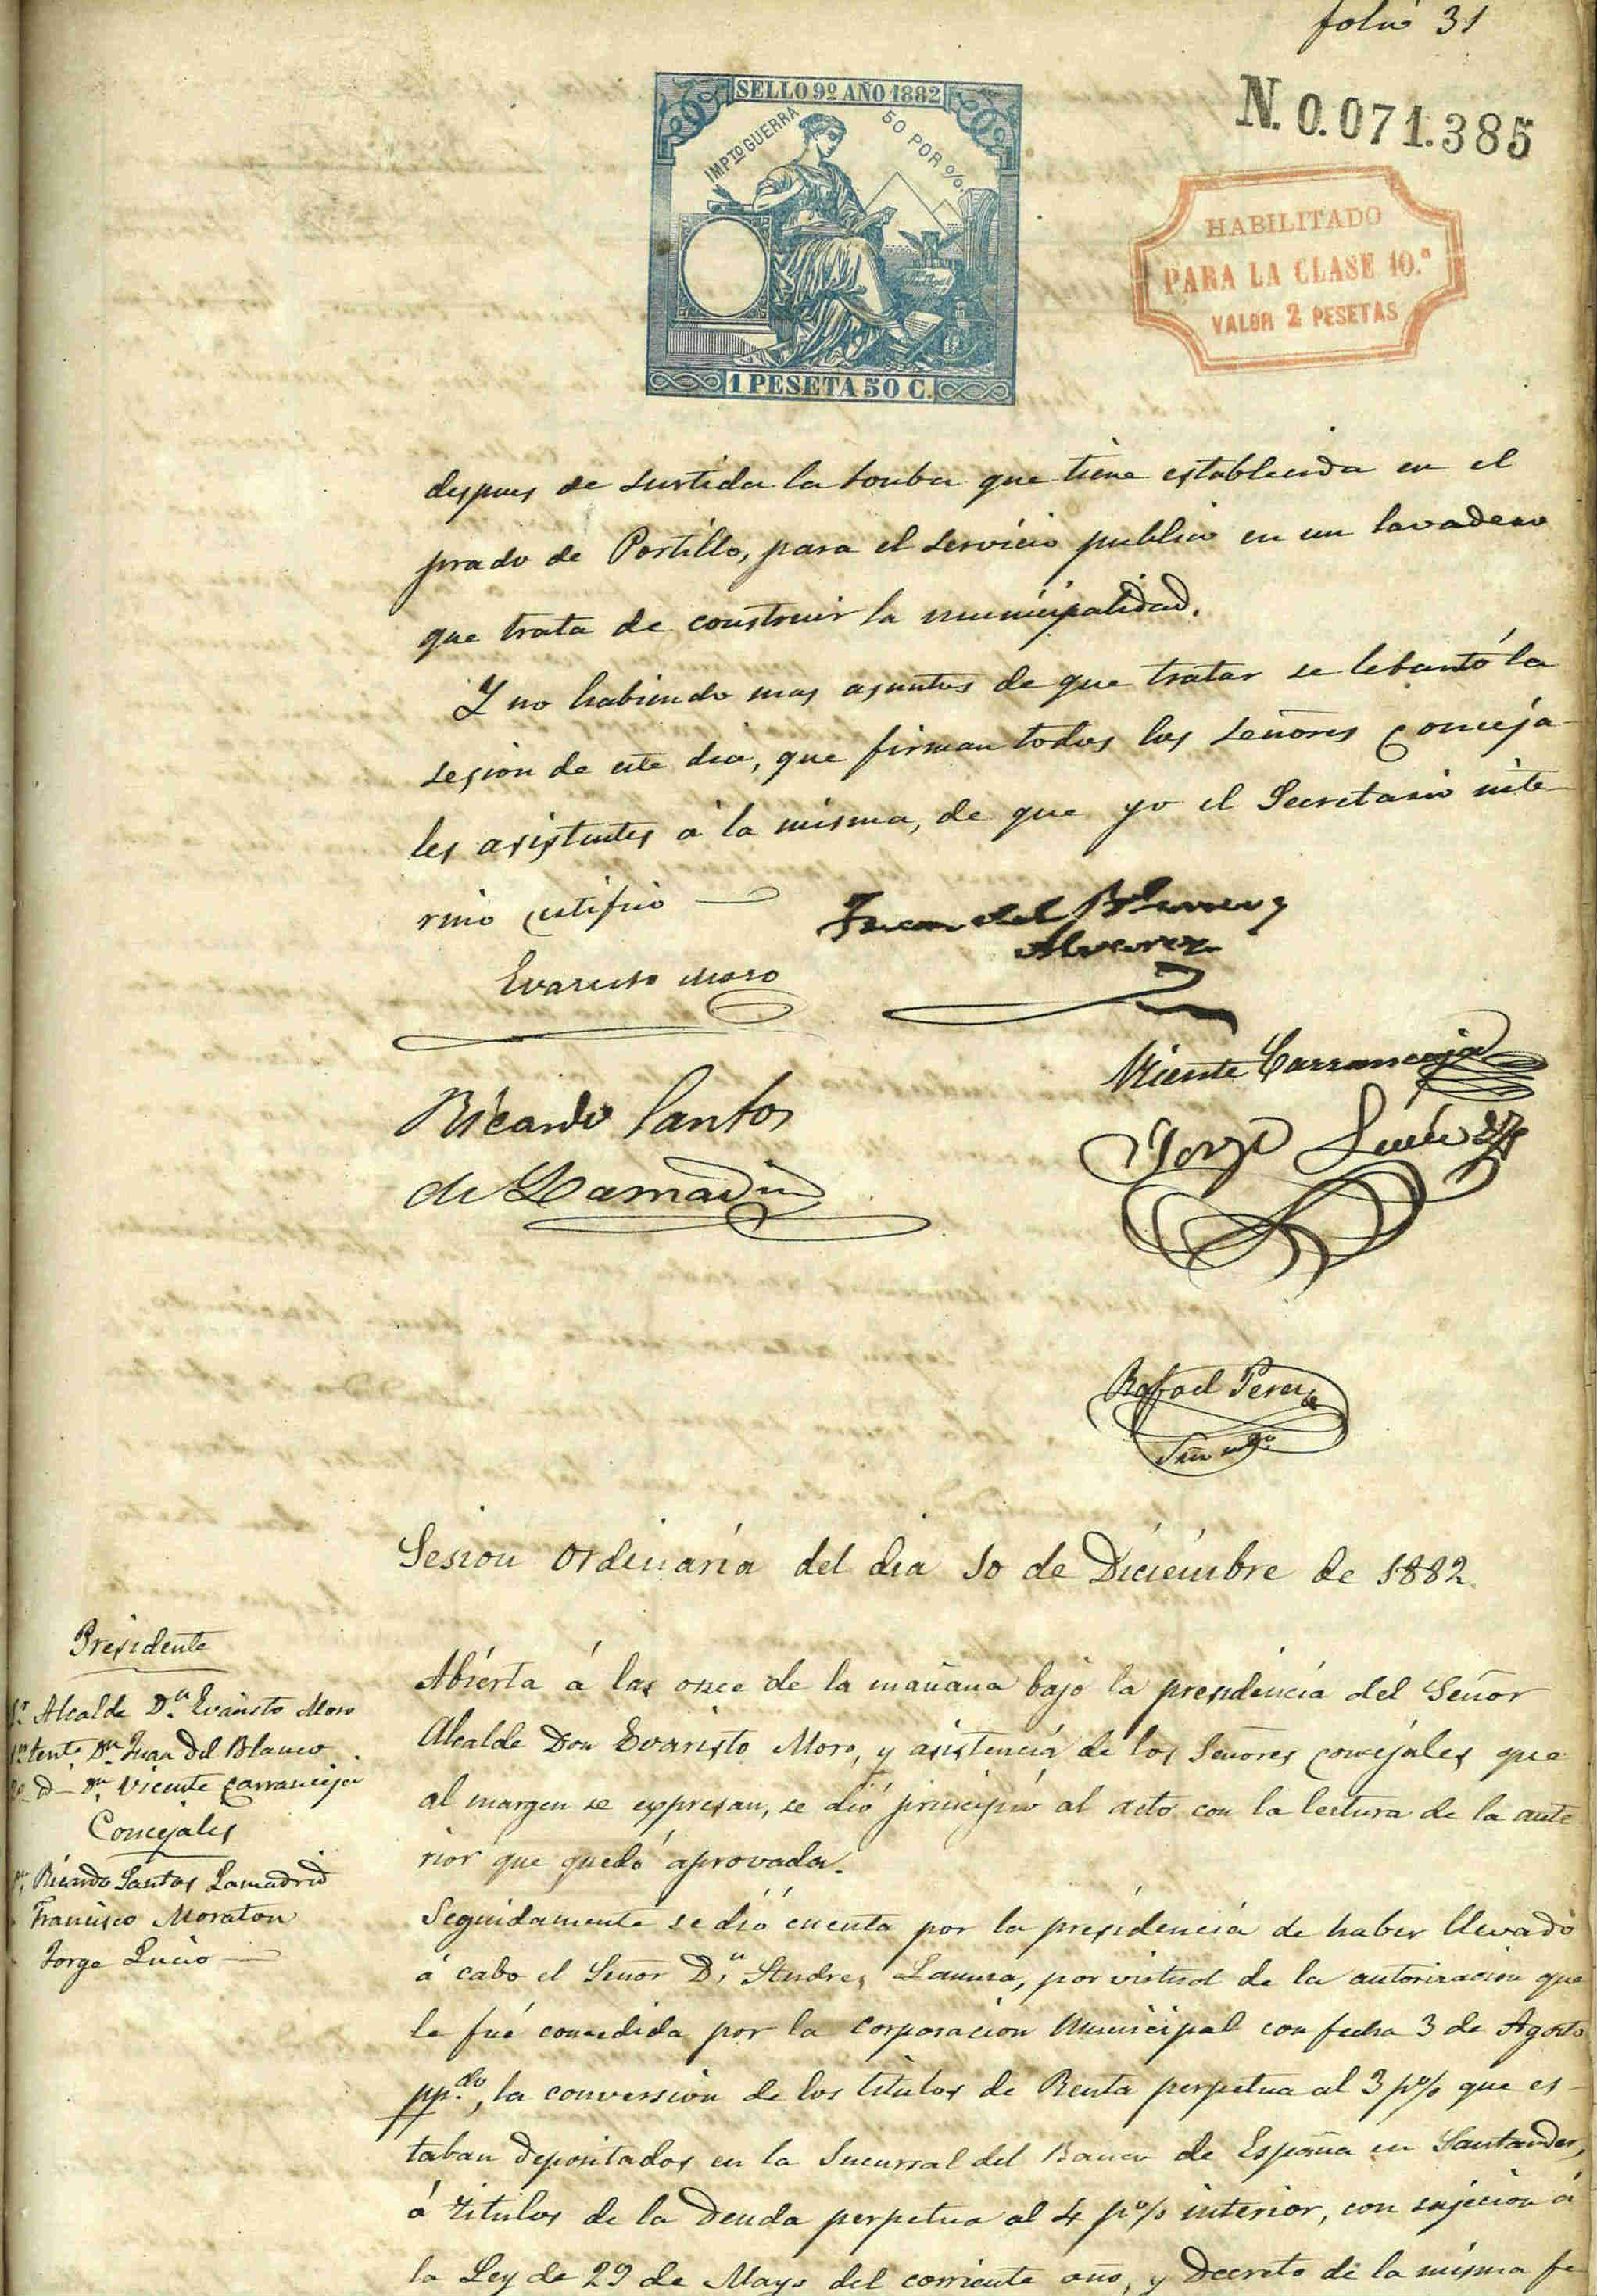 folio 31
SELLO 9º AÑO 1882
IMPTO GUERRA 50 POR %.
1 PESETA 50 C.
N. 0.071.385
HABILITADO
PARA LA CLASE 10.ª
VALOR 2 PESETAS
despues de surtida la bomba que tiene establecida en el
prado de Portillo, para el servicio publico en un lavadero
que trata de construir la municipalidad.
Y no habiendo mas asuntos de que tratar se lebantó la
sesion de este dia, que firman todos los señores Conceja-
les asistentes á la misma, de que yo el Secretario inte-
rino certifico
Evaristo Moro
Juan del Blanco y
Alvarez
Vicente Carranceja
Ricardo Santos
de Lamadrid
Jorge Lucio
Rafael Perez
Srio intº
Sesion Ordinaria del dia 10 de Diciembre de 1882.
Presidente
Sr. Alcalde Dn. Evaristo Moro
1er tente Dn. Juan del Blanco
2º id Dn. Vicente Carranceja
Concejales
Dn. Ricardo Santos Lamadrid
Francisco Moraton
Jorge Lucio
Abierta á las once de la mañana bajo la presidencia del Señor
Alcalde Don Evaristo Moro, y asistencia de los Señores Concejales que
al margen se expresan, se dió principio al acto con la lectura de la ante
rior que quedó aprovada.
Seguidamente se dió cuenta por la presidencia de haber llevado
á cabo el Señor Dn. Andres Lamera, por virtud de la autorizacion que
le fué concedida por la Corporacion Municipal con fecha 3 de Agosto
pp.do, la conversion de los titulos de Renta perpetua al 3 p% que es-
taban depositados en la Sucursal del Banco de España en Santander,
á titulos de la Deuda perpetua al 4 p% interior, con sujecion á
la Ley de 29 de Mayo del corriente año, y Decreto de la misma fe